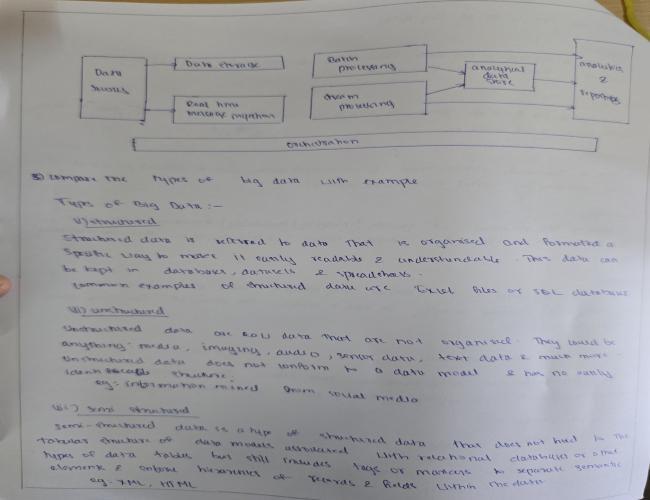 Data sources
Data storage
Real time message ingestion
Batch processing
stream processing
analytical data store
analytics & reporting
orchestration
3) compare the types of big data with example
Types of Big Data :-
i) structured
structured data is referred to data that is organised and formatted in a
specific way to make it easily readable & understandable. This data can
be kept in databases, datasets & spreadsheets.
common examples of structured data are Excel files or SQL databases
ii) unstructured
unstructured data are raw data that are not organised. They could be
anything: media, imaging, audio, sensor data, text data & much more.
unstructured data does not conform to a data model & has no easily
identifiable structure.
eg:- information mined from social media
iii) semi structured
semi-structured data is a type of structured data that does not to the
tabular structure of data models associated with relational databases or other
types of data tables but still includes tags or markers to separate semantic
elements & enforce hierarchies of records & fields within the data.
eg:- XML, HTML